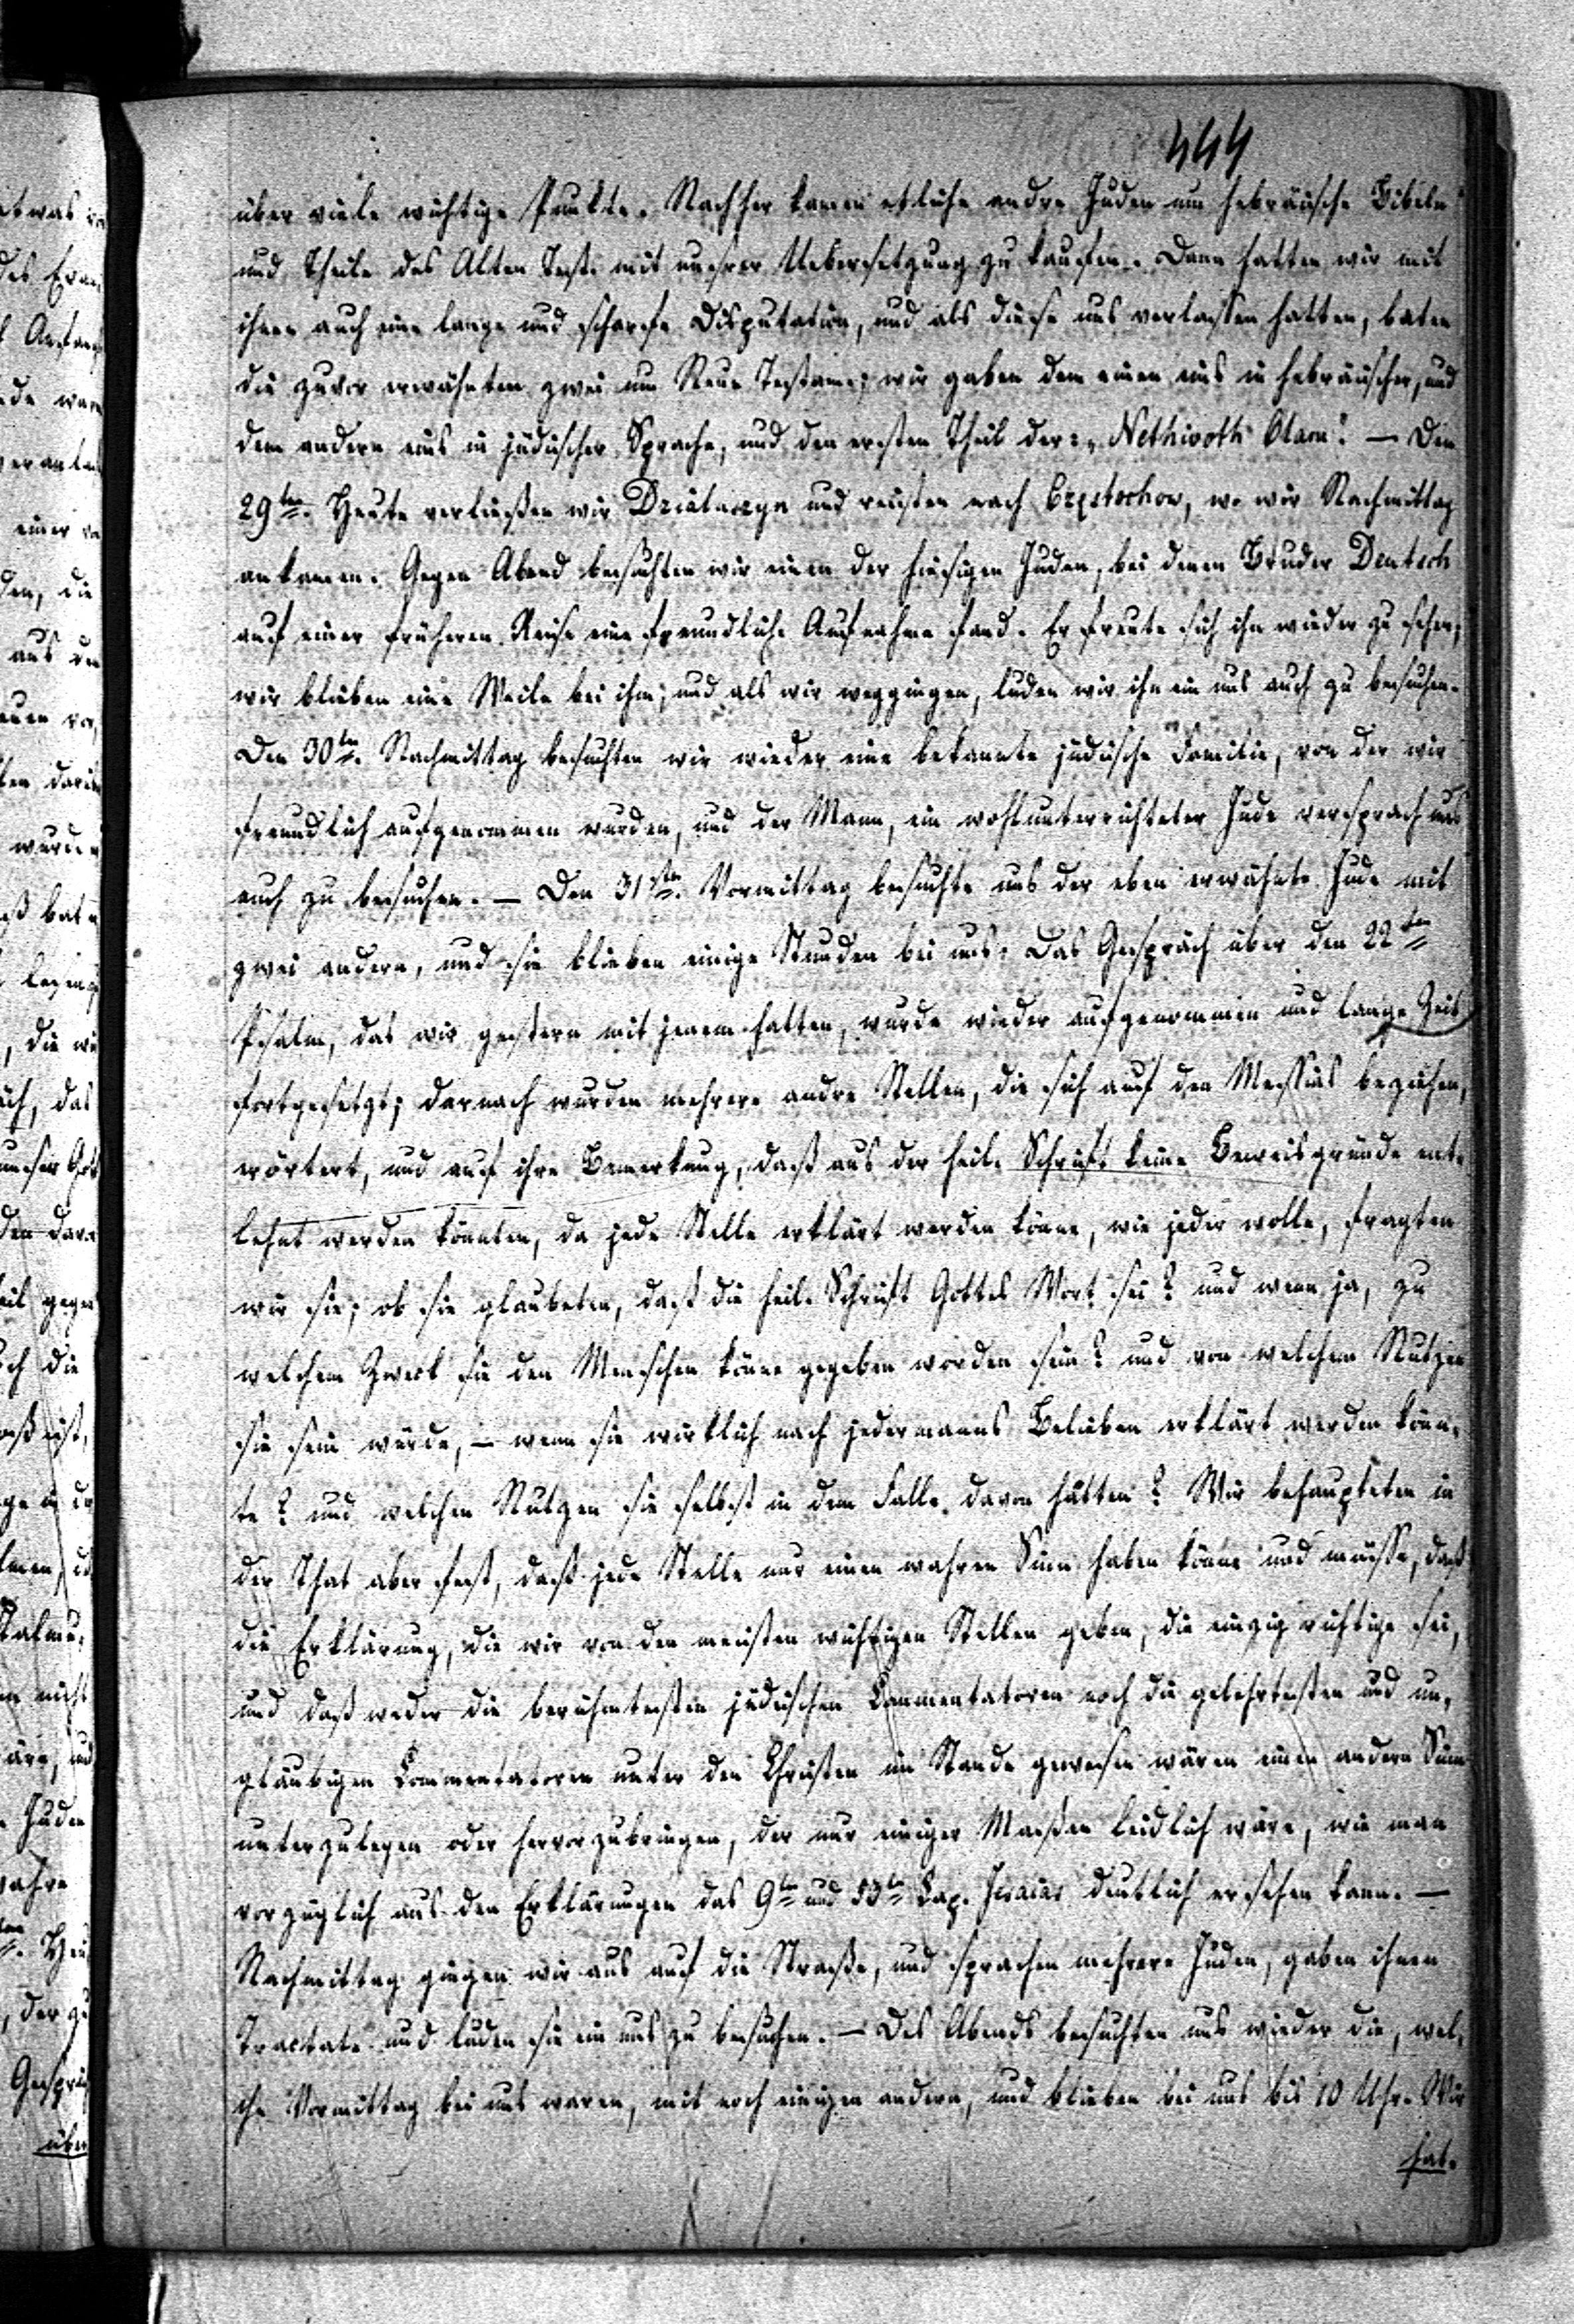 444
über viele wichtige Punkte. Nachher kamen etliche andre Juden um hebräische Bibeln
und Theile des Alten Test. mit unsrer Uebersetzung zu kaufen. Dann hatten wir mit
ihnen auch eine lange und scharfe Disputation, und als diese uns verlassen hatten, baten
die zuvor erwähnten zwei um Neue Testam; wir gaben dem einen eins in hebräischer, und
dem andern eins in jüdischer Sprache, und den ersten Theil der: „Nethivoth Olam". — Den
29ten. Heute verließen wir Działoszyn und reisten nach Częstochow, wo wir Nachmittag
ankamen. Gegen Abend besuchten wir einen der hiesigen Juden, bei denen Bruder Deutsch
auf einer früheren Reise eine freundliche Aufnahme fand. Er freute sich ihn wieder zu sehen;
wir blieben eine Weile bei ihm; und als wir weggingen, luden wir ihn ein uns auch zu besuchen.
Den 30ten. Nachmittag besuchten wir wieder eine bekannte jüdische Familie, von der wir
freundlich aufgenommen wurden, und der Mann, ein wohlunterrichteter Jude versprach uns
auch zu besuchen. — Den 31sten. Vormittag besuchte uns der eben erwähnte Jude mit
zwei andern, und sie blieben einige Stunden bei uns. Das Gespräch über den 22ten
Psalm, das wir gestern mit jenem hatten, wurde wieder aufgenommen und lange Zeit
fortgesetzt; darnach wurden mehrere andre Stellen, die sich auf den Messias beziehen,
erörtert, und auf ihre Bemerkung, daß aus der heil. Schrift keine Beweisgründe ent-
lehnt werden könnten, da jede Stelle erklärt werden könne, wie jeder wolle, fragten
wir sie; ob sie glaubeten, daß die heil. Schrift Gottes Wort sei? und wenn ja, zu
welchem Zweck sie den Menschen könne gegeben worden sein? und von welchem Nutzen
sie sein würde, — wenn sie wirklich nach jedermanns Belieben erklärt werden könn-
te? und welchen Nutzen sie selbst in dem Falle davon hätten? Wir behaupteten in
der That aber fest, daß jede Stelle nur einen wahren Sinn haben könne und müsse, daß
die Erklärung, die wir von den meisten wichtigen Stellen geben, die einzig richtige sei,
und daß weder die berühmtesten jüdischen Commentatoren noch die gelehrtesten und un-
gläubigen Commentatoren unter den Christen im Stande gewesen wären einen andern Sinn
unterzulegen oder hervorzubringen, der nur einiger Maßen leidlich wäre, wie man
vorzüglich aus den Erklärungen das 9ten und 53ten Cap. Jesaias deutlich ersehen kann. —
Nachmittag gingen wir aus auf die Straße, und sprachen mehrere Juden, gaben ihnen
Tractate und luden sie ein uns zu besuchen. — Des Abends besuchten uns wieder die, wel-
che Vormittag bei uns waren, mit noch einigen andern, und blieben bei uns bis 10 Uhr. Wir
hat-